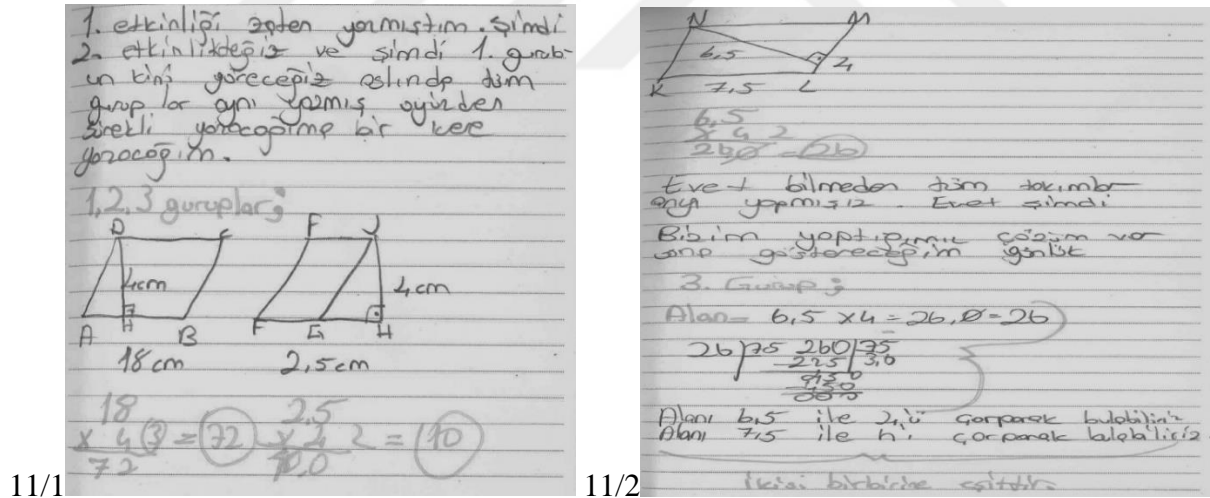 1. etkinliği zaten yazmıştım. Şimdi
2. etkinlikdeğiz ve şimdi 1. gurub-
un kini göreceğiz aslında tüm
gurup lar aynı yazmış oyüzden
sürekli yazacağıma bir kere
yazacağım.
1,2,3 guruplar;
D F J
4cm 4cm
A H B F G H
18cm 2,5cm
18 2,5
x 4 = 72 x 4 = 10
72 10,0
11/1
N M
6,5 4
K 7,5 L
6,5
x 4
26,0 = 26
Evet bilmeden tüm takımlar
aynı yapmışız. Evet şimdi
Bizim yaptığımız çözüm var
sana göstereceğim günlük
3. Gurup;
Alan = 6,5 x 4 = 26,0 = 26
26 75 260 75
225 3,0
Alanı 6,5 ile 4'ü çarparak bulabiliriz
Alanı 7,5 ile h'ı çarparak bulabiliriz
ikisi birbirine eşittir.
11/2